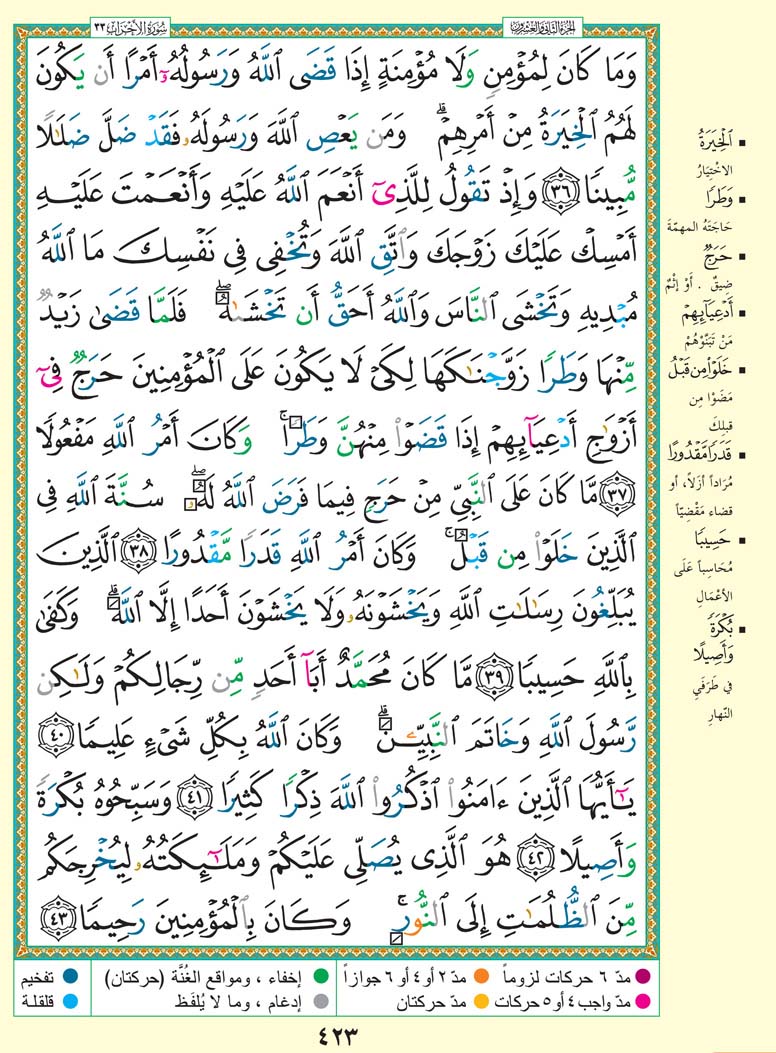 الجزء الثاني والعشرون
سورة الأحزاب ٣٣
وَمَا كَانَ لِمُؤْمِنٍ وَلَا مُؤْمِنَةٍ إِذَا قَضَى ٱللَّهُ وَرَسُولُهُۥٓ أَمْرًا أَن يَكُونَ
لَهُمُ ٱلْخِيَرَةُ مِنْ أَمْرِهِمْ ۗ وَمَن يَعْصِ ٱللَّهَ وَرَسُولَهُۥ فَقَدْ ضَلَّ ضَلَٰلًا
مُّبِينًا ٣٦ وَإِذْ تَقُولُ لِلَّذِىٓ أَنْعَمَ ٱللَّهُ عَلَيْهِ وَأَنْعَمْتَ عَلَيْهِ
أَمْسِكْ عَلَيْكَ زَوْجَكَ وَٱتَّقِ ٱللَّهَ وَتُخْفِى فِى نَفْسِكَ مَا ٱللَّهُ
مُبْدِيهِ وَتَخْشَى ٱلنَّاسَ وَٱللَّهُ أَحَقُّ أَن تَخْشَىٰهُ ۖ فَلَمَّا قَضَىٰ زَيْدٌ
مِّنْهَا وَطَرًا زَوَّجْنَٰكَهَا لِكَىْ لَا يَكُونَ عَلَى ٱلْمُؤْمِنِينَ حَرَجٌ فِىٓ
أَزْوَٰجِ أَدْعِيَآئِهِمْ إِذَا قَضَوْا۟ مِنْهُنَّ وَطَرًا ۚ وَكَانَ أَمْرُ ٱللَّهِ مَفْعُولًا
٣٧ مَّا كَانَ عَلَى ٱلنَّبِىِّ مِنْ حَرَجٍ فِيمَا فَرَضَ ٱللَّهُ لَهُۥ ۖ سُنَّةَ ٱللَّهِ فِى
ٱلَّذِينَ خَلَوْا۟ مِن قَبْلُ ۚ وَكَانَ أَمْرُ ٱللَّهِ قَدَرًا مَّقْدُورًا ٣٨ ٱلَّذِينَ
يُبَلِّغُونَ رِسَٰلَٰتِ ٱللَّهِ وَيَخْشَوْنَهُۥ وَلَا يَخْشَوْنَ أَحَدًا إِلَّا ٱللَّهَ ۗ وَكَفَىٰ
بِٱللَّهِ حَسِيبًا ٣٩ مَّا كَانَ مُحَمَّدٌ أَبَآ أَحَدٍ مِّن رِّجَالِكُمْ وَلَٰكِن
رَّسُولَ ٱللَّهِ وَخَاتَمَ ٱلنَّبِيِّۦنَ ۗ وَكَانَ ٱللَّهُ بِكُلِّ شَىْءٍ عَلِيمًا ٤٠
يَٰٓأَيُّهَا ٱلَّذِينَ ءَامَنُوا۟ ٱذْكُرُوا۟ ٱللَّهَ ذِكْرًا كَثِيرًا ٤١ وَسَبِّحُوهُ بُكْرَةً
وَأَصِيلًا ٤٢ هُوَ ٱلَّذِى يُصَلِّى عَلَيْكُمْ وَمَلَٰٓئِكَتُهُۥ لِيُخْرِجَكُم
مِّنَ ٱلظُّلُمَٰتِ إِلَى ٱلنُّورِ ۚ وَكَانَ بِٱلْمُؤْمِنِينَ رَحِيمًا ٤٣
▪ ٱلْخِيَرَةُ
الاخْتِيَارُ
▪ وَطَرًا
حَاجَتَهُ المهمّةَ
▪ حَرَجٌ
ضِيقٌ . أَوْ إثْمٌ
▪ أَدْعِيَآئِهِمْ
مَنْ تَبَنَّوْهُمْ
▪ خَلَوْا۟ مِن قَبْلُ
مَضَوْا مِن
قبلِكَ
▪ قَدَرًا مَّقْدُورًا
مُرَاداً أَزَلاً، أو
قضاء مَقْضِيّاً
▪ حَسِيبًا
مُحَاسِباً عَلَى
الأعْمَالِ
▪ بُكْرَةً
وَأَصِيلًا
في طَرَفَيِ
النّهارِ
مدّ ٦ حركات لزوماً
مدّ ٢ أو ٤ أو ٦ جوازاً
إخفاء ، ومواقع الغُنَّة (حركتان)
تفخيم
مدّ واجب ٤ أو ٥ حركات
مدّ حركتان
إدغام ، وما لا يُلفَظ
قلقلة
٤٢٣